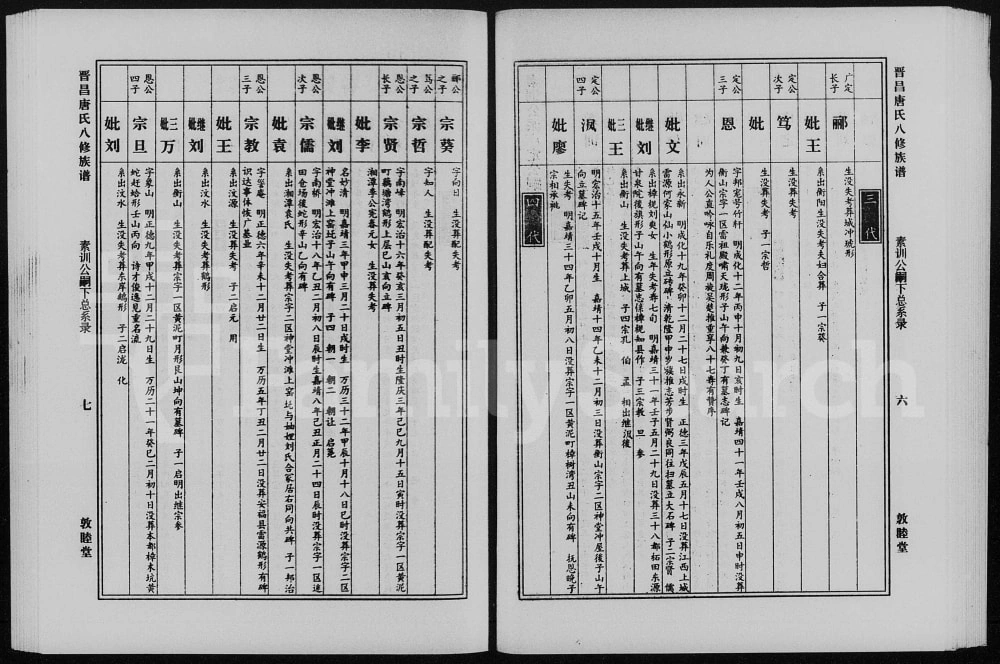 晋昌唐氏八修族谱
素训公嗣下总系录
六
敦睦堂
三代
广定长子
郦
生没失考葬城冲琥形
妣王
系出衡阳生没失考夫妇合葬 子一宗葵
定公次子
笃
生没葬失考
妣
生没葬失考 子一宗哲
定公三子
恩
字邦宠号竹轩 明成化十二年丙申十月初九日亥时生 嘉靖四十一年壬戌八月初五日申时没葬
衡山宗字一区雷祖殿啸天珑形子山午向兼癸丁有墓志碑记
为人公直吟咏自乐礼度周旋吴楚推重享八十七寿有赞序
妣文
系出永新 明成化十九年癸卯十二月二十七日戌时生 正德三年戊辰五月十七日没葬江西上城
雷源何家山仙小鹤形原立砖碑 清乾隆甲申步族推志芳步贤弼良同往扫墓立大石碑 子二宗贤 儒
继妣刘
系出樟枧刘爽女 生年失考寿七旬 明嘉靖三十一年壬子五月二十九日没葬三十八都柘田东源
甘泉院後旗形子山午向有墓志係樟枧知县作 子三宗教 旦 参
三妣王
系出衡山 生没失考葬上城 子四宗孔 伯 孟 相出继沨後
定公四子
沨
明宏治十五年壬戌十月生 嘉靖十四年乙未十二月初三日没葬衡山宗字二区神堂冲屋後子山午
向立墓碑记
妣廖
生失考 明嘉靖三十四年乙卯五月初八日没葬宗字一区黄泥町樟树湾丑山未向有碑 抚恩晚子
宗相承祧
四代
郦公之子
宗葵
字向日 生没葬配失考
笃公之子
宗哲
字如人 生没葬配失考
恩公长子
宗贤
字南峰 明宏治十六年癸亥三月初五日丑时生隆庆三年己巳九月十五日寅时没葬宗字一区黄泥
町藕塘湾鹤形上层巳山亥向立碑
妣李
湘潭李公宪春元女 生没葬失考
继妣刘
名妙清 明嘉靖三年甲申三月二十日戌时生 万历三十二年甲辰十月十八日巳时没葬宗字二区
神堂冲滩上窑坵子山午向有碑 子四 朝一 朝二 朝让 启冕
恩公次子
宗儒
字南桥 明宏治十八年乙丑二月初八日辰时生嘉靖八年己丑正月二十四日辰时没葬宗字一区连
田仓场後蛇形辛山乙向有碑
妣袁
系出湘潭袁氏 生没失考葬宗字二区神堂冲滩上窑坵与妯娌刘氏合冢居右同向共碑 子一邦治
恩公三子
宗教
字警庵 明正德六年辛未十二月廿二日生 万历五年丁丑二月廿二日没葬安福县雷源鹤形有碑
识达事体恢广基业
妣王
系出汶源 生没葬失考 子二启元 用
继妣刘
系出汶水 生没失考葬鹤形
三妣万
系出衡山 生没失考葬宗字一区黄泥町月形艮山坤向有墓碑 子一启明出继宗参
恩公四子
宗旦
字象山 明正德九年甲戌十二月二十九日生 万历二十一年癸巳二月初十日没葬本都樟木坑黄
蛇赶蛤形壬山丙向 诗才俊逸见重名流
妣刘
系出汶水 生没失考葬东岸鹤形 子二启泷 化
晋昌唐氏八修族谱
素训公嗣下总系录
七
敦睦堂
FamilySearch